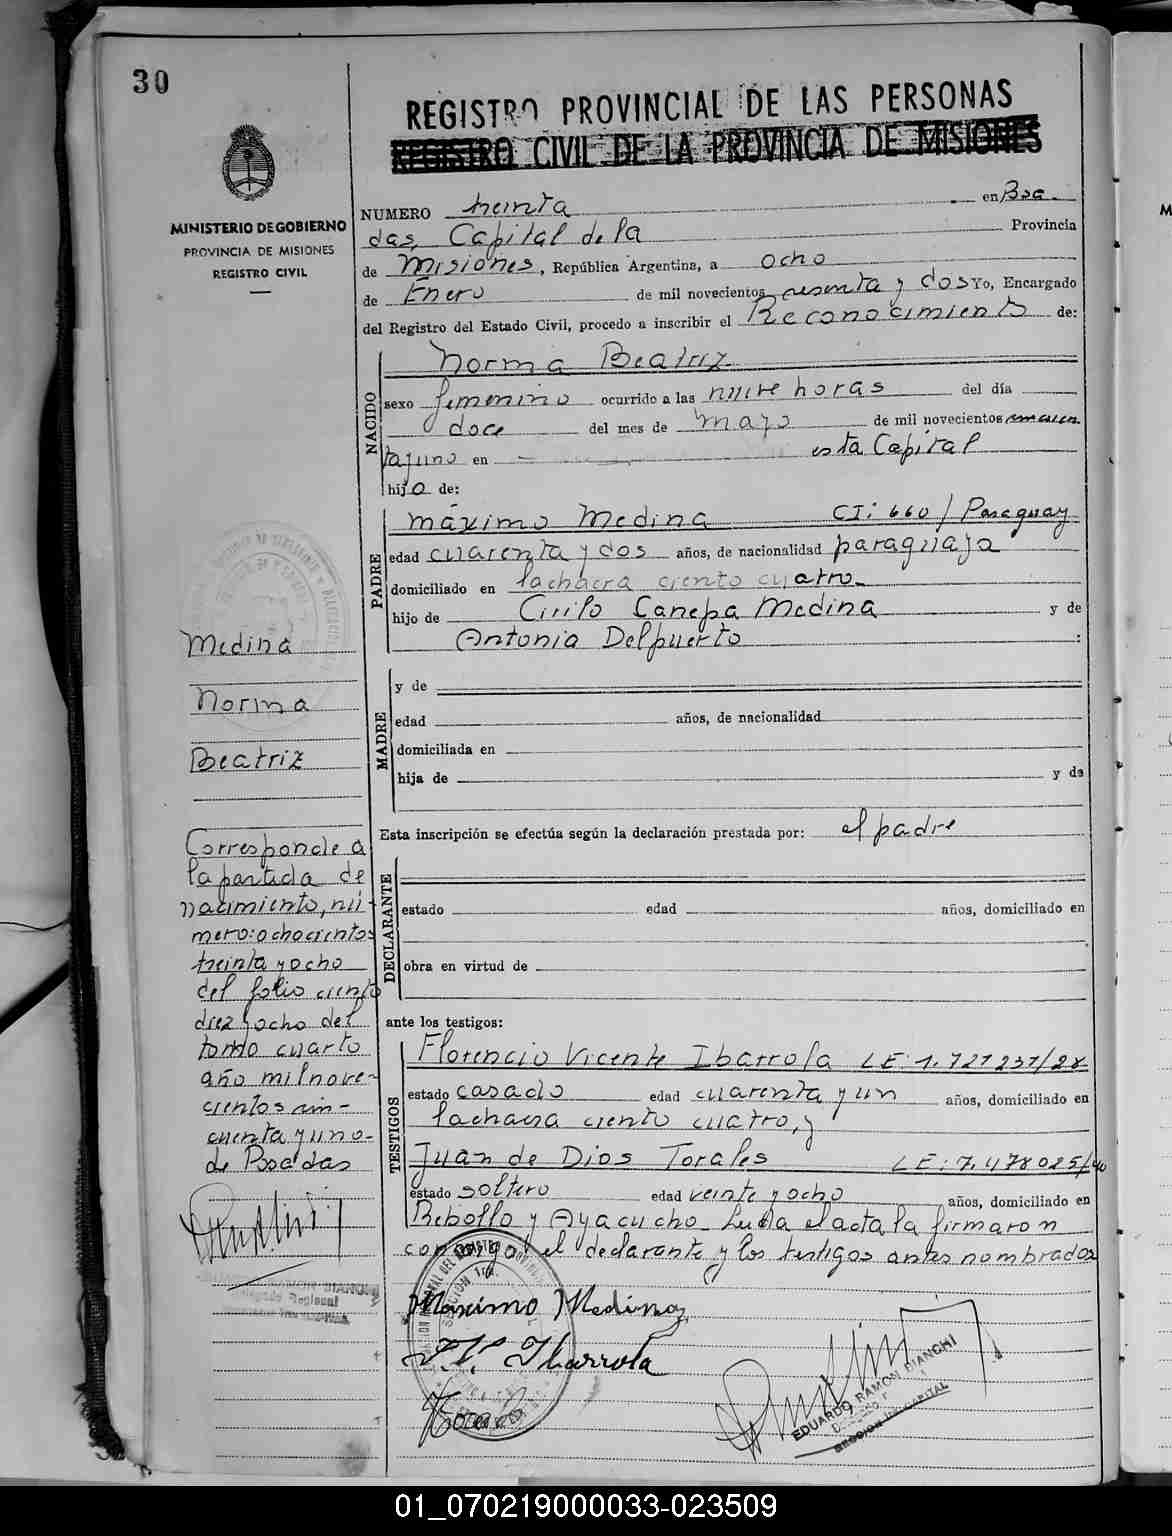 30
REGISTRO PROVINCIAL DE LAS PERSONAS
REGISTRO CIVIL DE LA PROVINCIA DE MISIONES
MINISTERIO DE GOBIERNO
PROVINCIA DE MISIONES
REGISTRO CIVIL
NUMERO treinta en Posa-
das, Capital de la Provincia
de Misiones, República Argentina, a ocho
de Enero de mil novecientos sesenta y dos Yo, Encargado
del Registro del Estado Civil, procedo a inscribir el Reconocimiento de:
NACIDO
Norma Beatriz
sexo femenino ocurrido a las nueve horas del día
doce del mes de mayo de mil novecientos cincuen
ta y uno en esta Capital
hija de:
PADRE
máximo Medina CI: 660/Paraguay
edad cuarenta y dos años, de nacionalidad paraguaya
domiciliado en la chacra ciento cuatro.
hijo de Cirilo Canepa Medina y de
Antonia Delpuerto :
MADRE
y de
edad años, de nacionalidad
domiciliada en
hija de y de
Esta inscripción se efectúa según la declaración prestada por: el padre
DECLARANTE
estado edad años, domiciliado en
obra en virtud de
ante los testigos:
TESTIGOS
Florencio Vicente Ibarrola LE: 1.727237/28
estado casado edad cuarenta y un años, domiciliado en
la chacra ciento cuatro, y
Juan de Dios Torales LE: 7.478025/40
estado soltero edad veinte y ocho años, domiciliado en
Rebollo y Ayacucho_ Leída el acta la firmaron
conmigo el declarante y los testigos antes nombrados
Máximo Medina
F.V. Ibarrola
EDUARDO RAMON BIANCHI
SECCION CAPITAL
Medina
Norma
Beatriz
Corresponde a
la partida de
nacimiento, nú-
mero: ochocientos
treinta y ocho
del folio ciento
diez y ocho del
tomo cuarto
año mil nove-
cientos cin-
cuenta y uno-
de Posadas
01_070219000033-023509